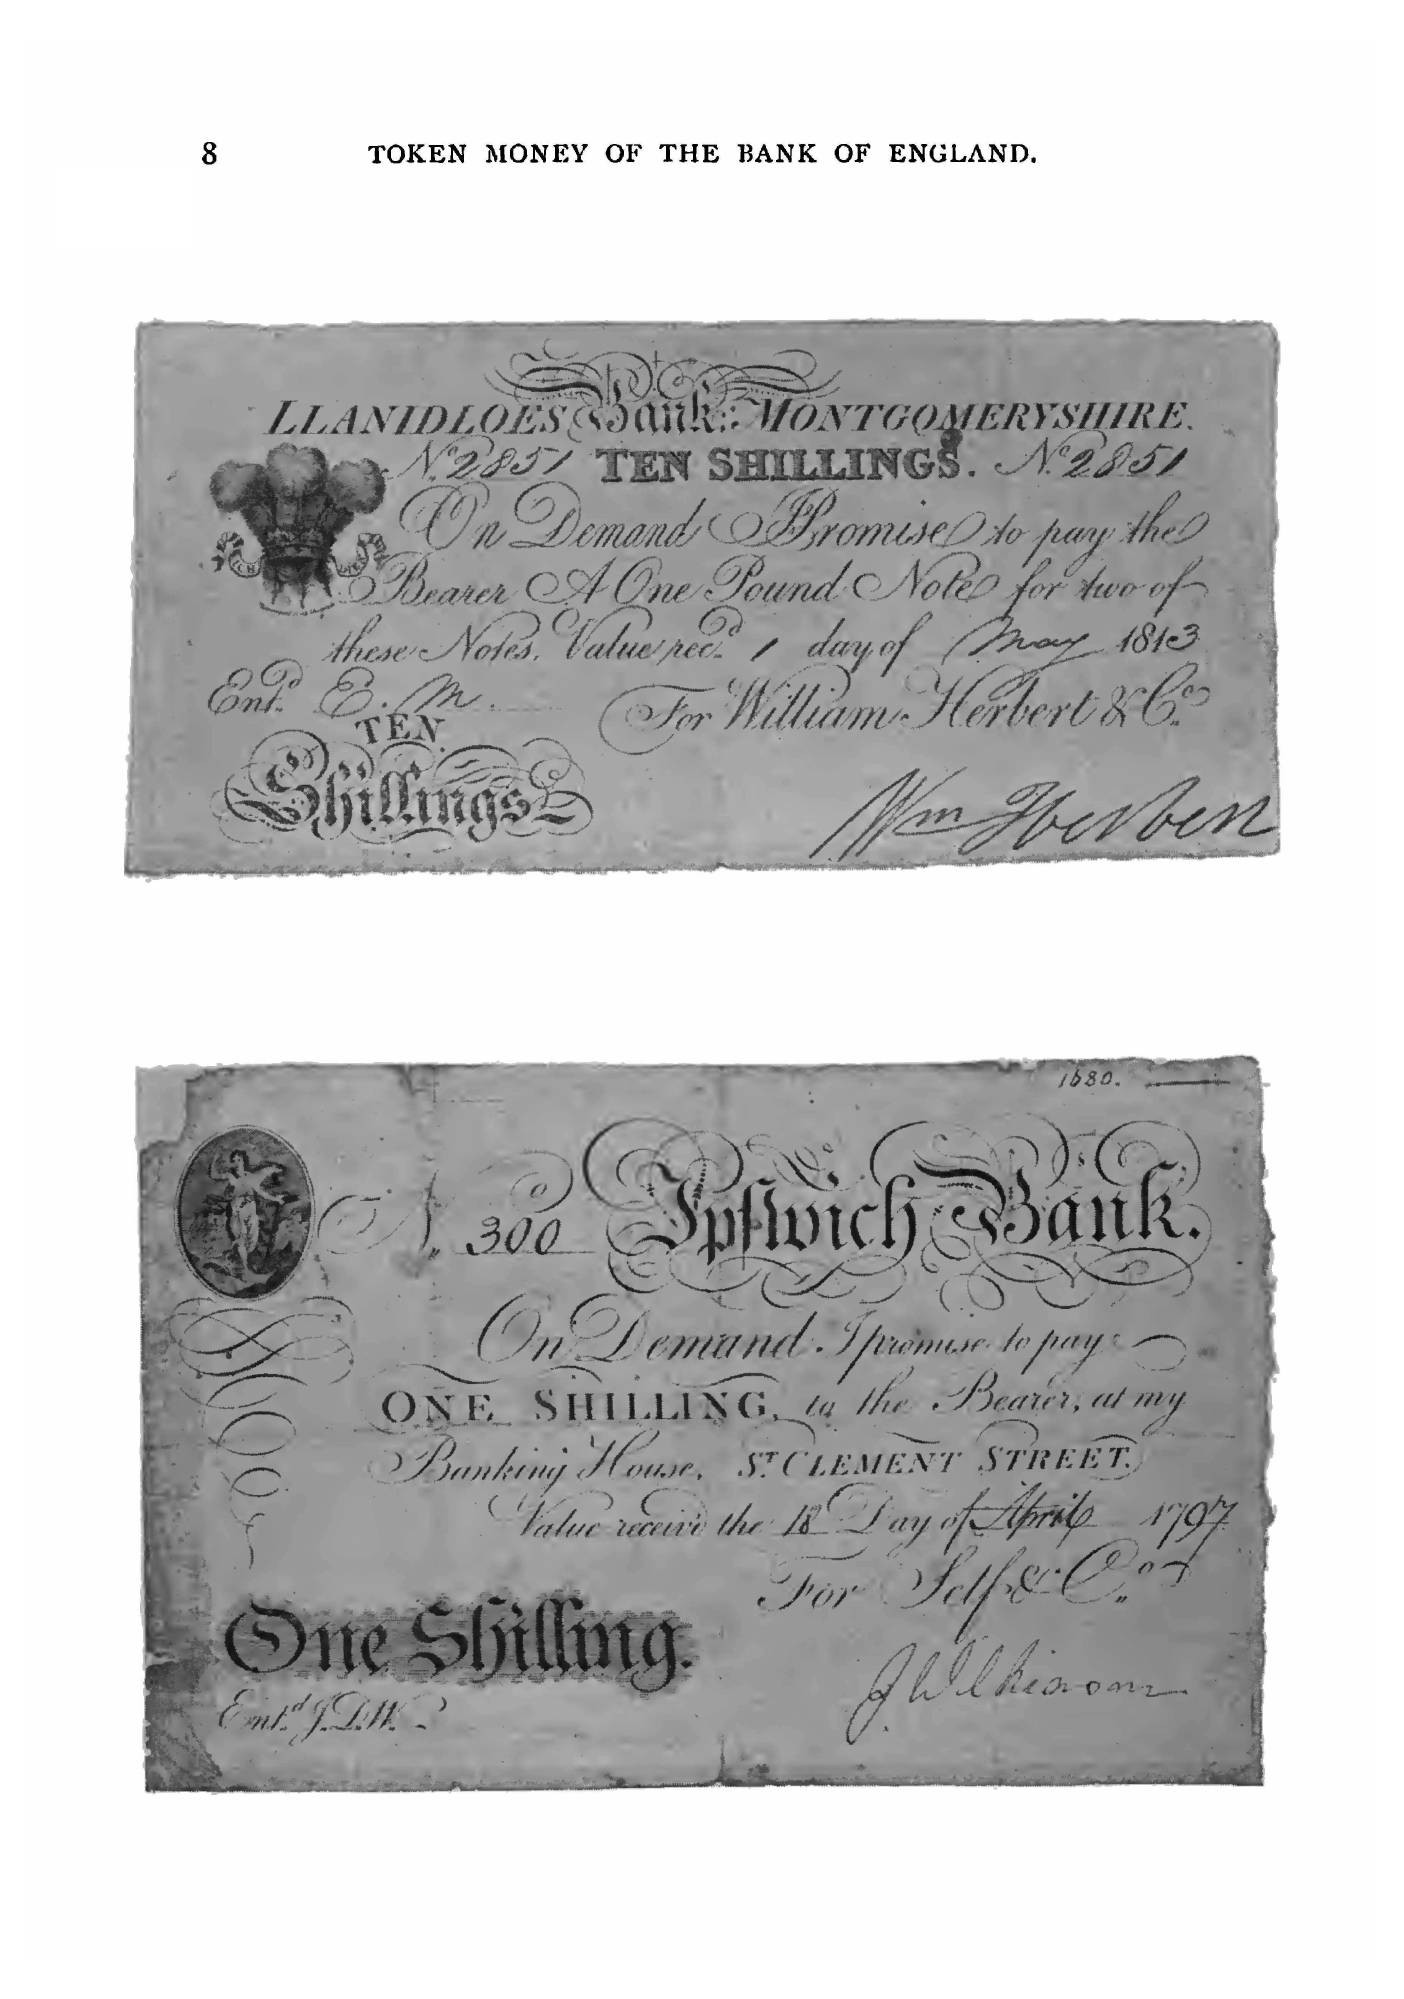 8 TOKEN MONEY OF THE BANK OF ENGLAND.
LLANIDLOES Bank: MONTGOMERYSHIRE.
No. 2851 TEN SHILLINGS. No. 2851
On Demand I Promise to pay the
Bearer A One Pound Note for two of
these Notes. Value recd. 1 day of May 1813
Entd. E. M.
For William Herbert & Co.
TEN
Shillings
Wm Herbert
1680.
No. 300 Ipſwich Bank.
On Demand I promise to pay
ONE SHILLING, to the Bearer, at my
Banking House, ST. CLEMENT STREET.
Value receiv'd the 18 Day of April 1797
For Self & Co.
One Shilling.
Entd. J.D.W.
J Wilkinson